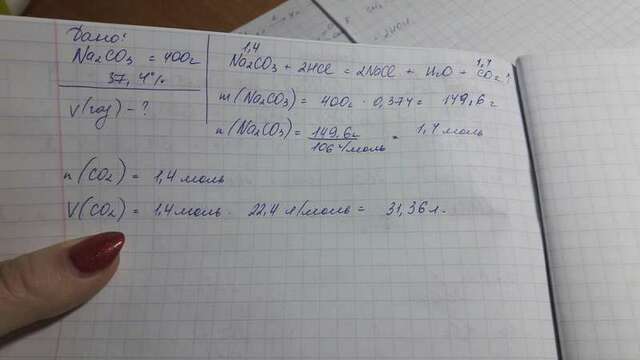 Дано:
Na₂CO₃ = 400г
37,4%
V(газ) - ?
1,4 1,4
Na₂CO₃ + 2HCl = 2NaCl + H₂O + CO₂↑
m(Na₂CO₃) = 400г · 0,374 = 149,6 г
n(Na₂CO₃) = 149,6г = 1,4 моль
106 г/моль
n(CO₂) = 1,4 моль
V(CO₂) = 1,4 моль · 22,4 л/моль = 31,36 л.